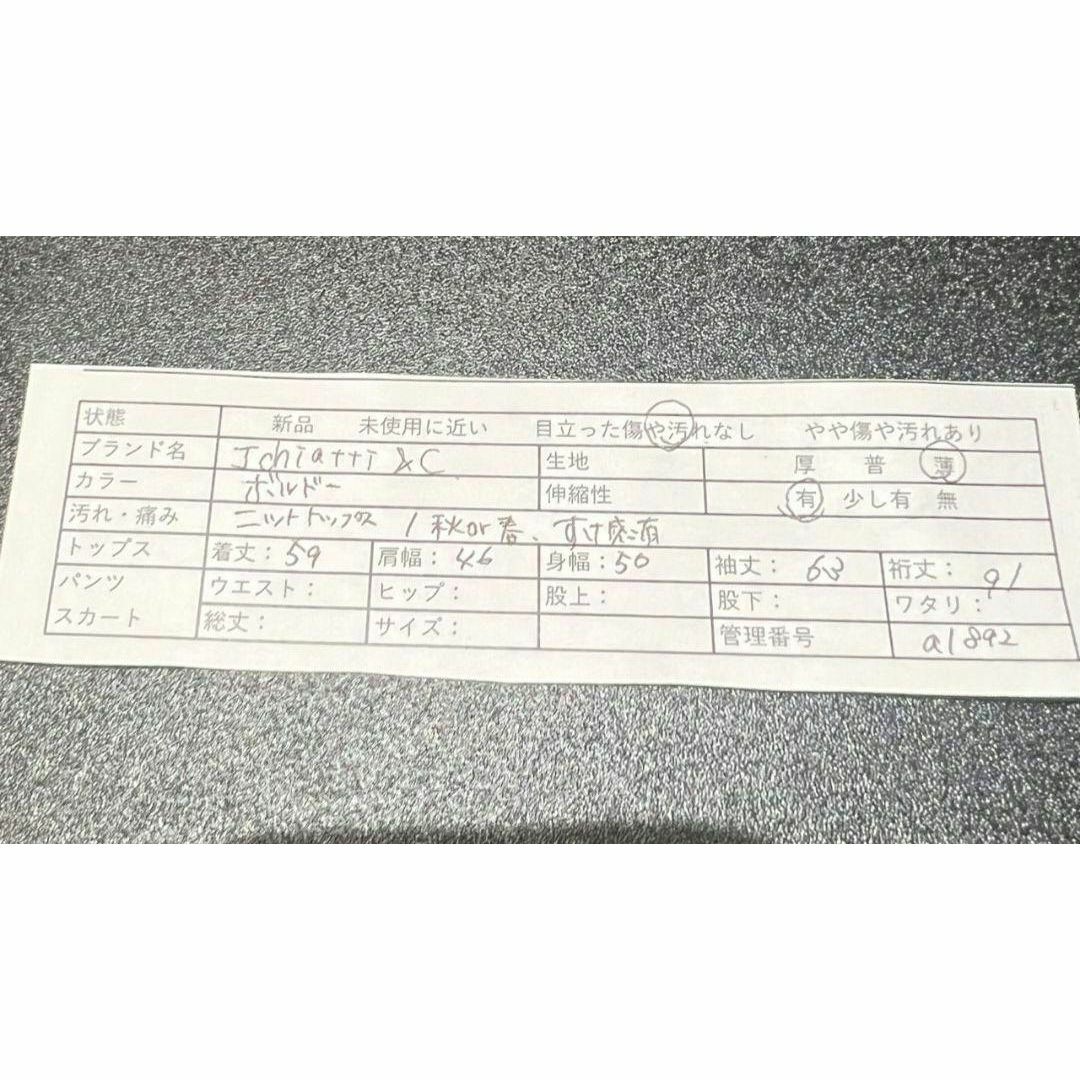 状態 新品 未使用に近い 目立った傷や汚れなし やや傷や汚れあり
ブランド名 Jchiatti &C 生地 厚 普 薄
カラー ボルドー 伸縮性 有 少し有 無
汚れ・痛み ニットトップス / 秋or春、すけ感有
トップス 着丈：59 肩幅：46 身幅：50 袖丈：63 裄丈：91
パンツ ウエスト： ヒップ： 股上： 股下： ワタリ：
スカート 総丈： サイズ： 管理番号 a1892